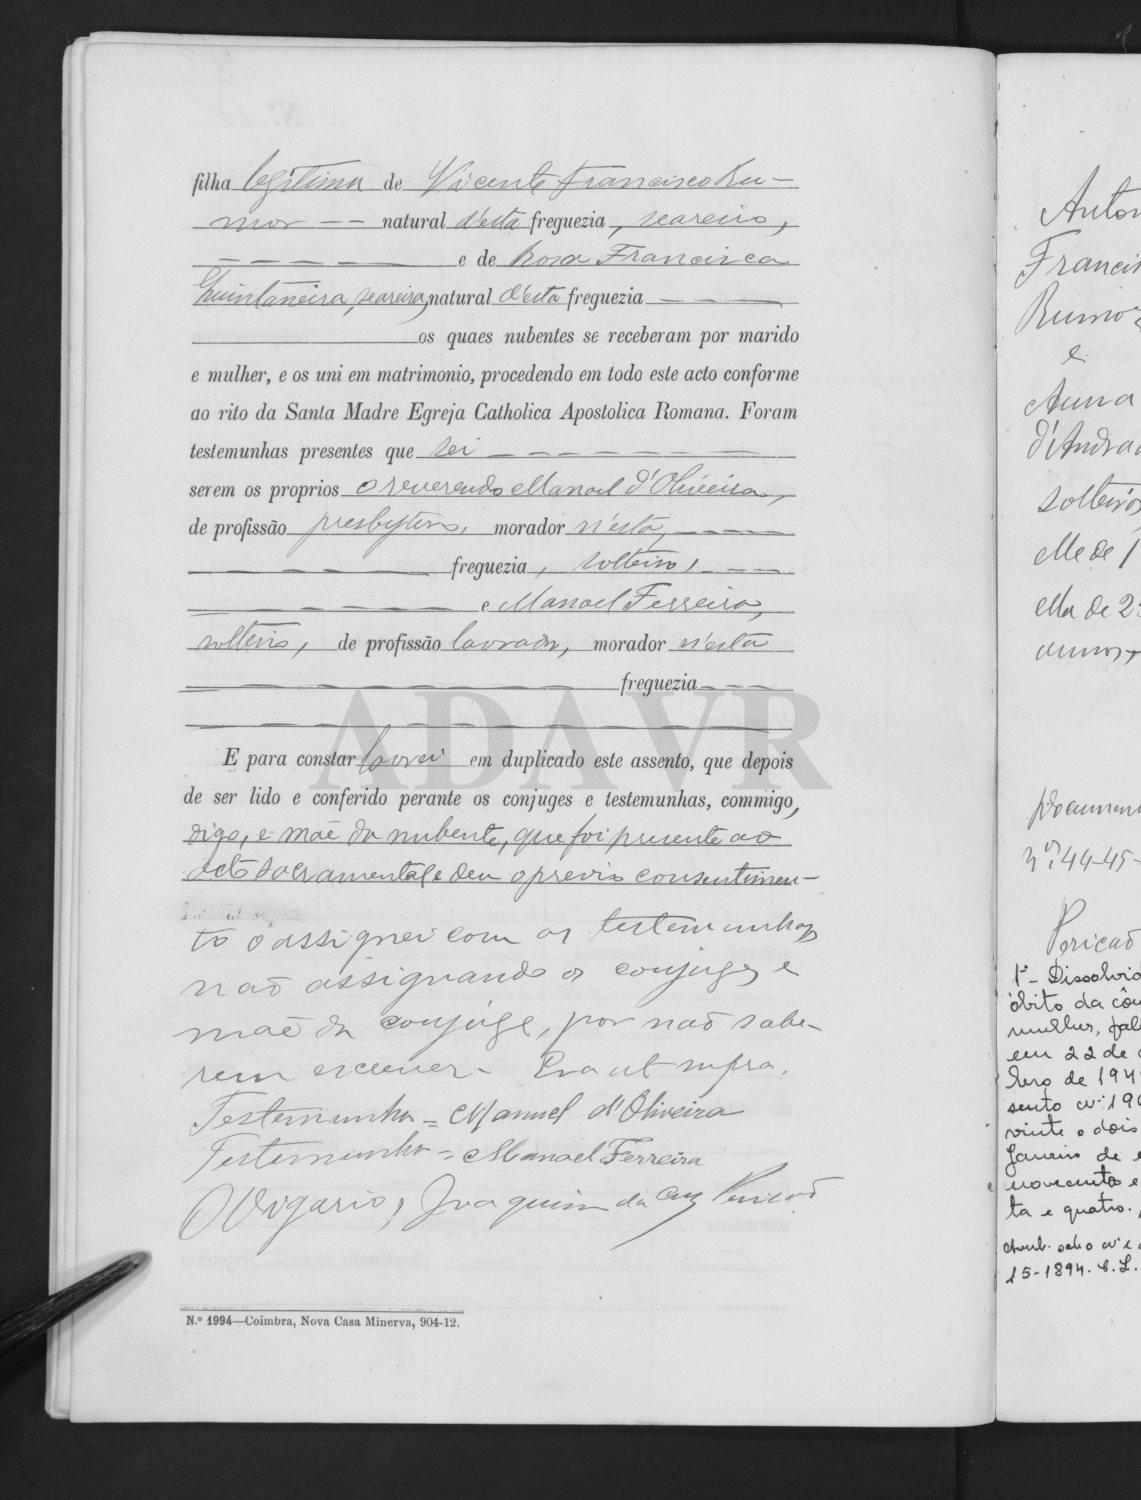 filha legitima de Vicente Francisco Ru-
mor -- natural d'esta freguezia, seareiro,
e de Rosa Francisca
Quintaneira, seareira, natural d'esta freguezia
os quaes nubentes se receberam por marido
e mulher, e os uni em matrimonio, procedendo em todo este acto conforme
ao rito da Santa Madre Egreja Catholica Apostolica Romana. Foram
testemunhas presentes que sei
serem os proprios o reverendo Manoel d'Oliveira,
de profissão presbytero, morador n'esta,
freguezia, solteiro,
e Manoel Ferreira,
solteiro, de profissão lavrador, morador n'esta
freguezia
E para constar lavrei em duplicado este assento, que depois
de ser lido e conferido perante os conjuges e testemunhas, commigo,
digo, e mãe da nubente, que foi presente ao
acto sacramental e deu o previo consentimen-
to o assignei com as testemunhas
não assignando os conjuges e
mãe da conjuge, por não sabe-
rem escrever - Era ut supra.
Testemunha = Manuel d'Oliveira
Testemunha = Manoel Ferreira
O Vigario, Joaquim da Cruz Pericão
N.º 1994—Coimbra, Nova Casa Minerva, 904-12.
ADAVR
Anton
Francis
Rumor
e
Anna
d'Andra
solteiros
elle de 1
ella de 2
annos
Documen
n.os 44-45-
Pericão
1º - Dissolvid
óbito da côn
mulher, fal
em 22 de
bro de 194
sento nº 190
vinte e dois
Janeiro de
novecentos e
ta e quatro.
Averb. sob o nº
15-1894. C.L.